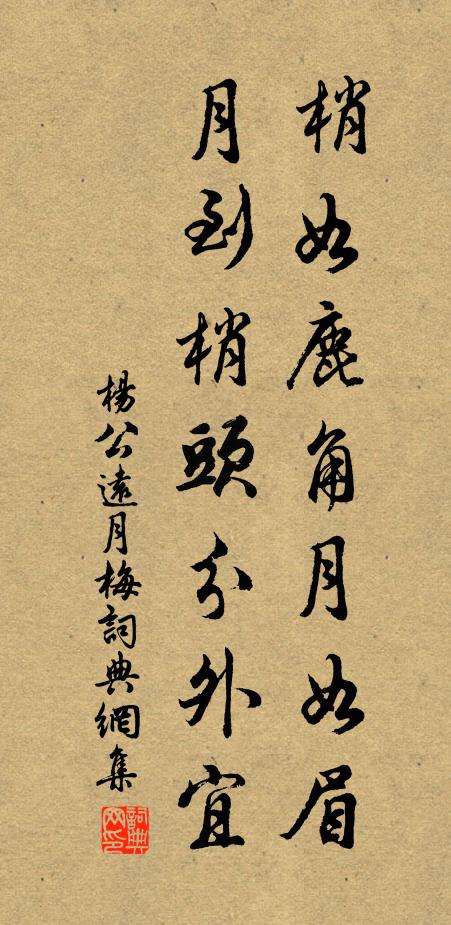 梢如鹿角月如眉
月到梢頭分外宜
楊公遠月梅詞典網集
詞典网印